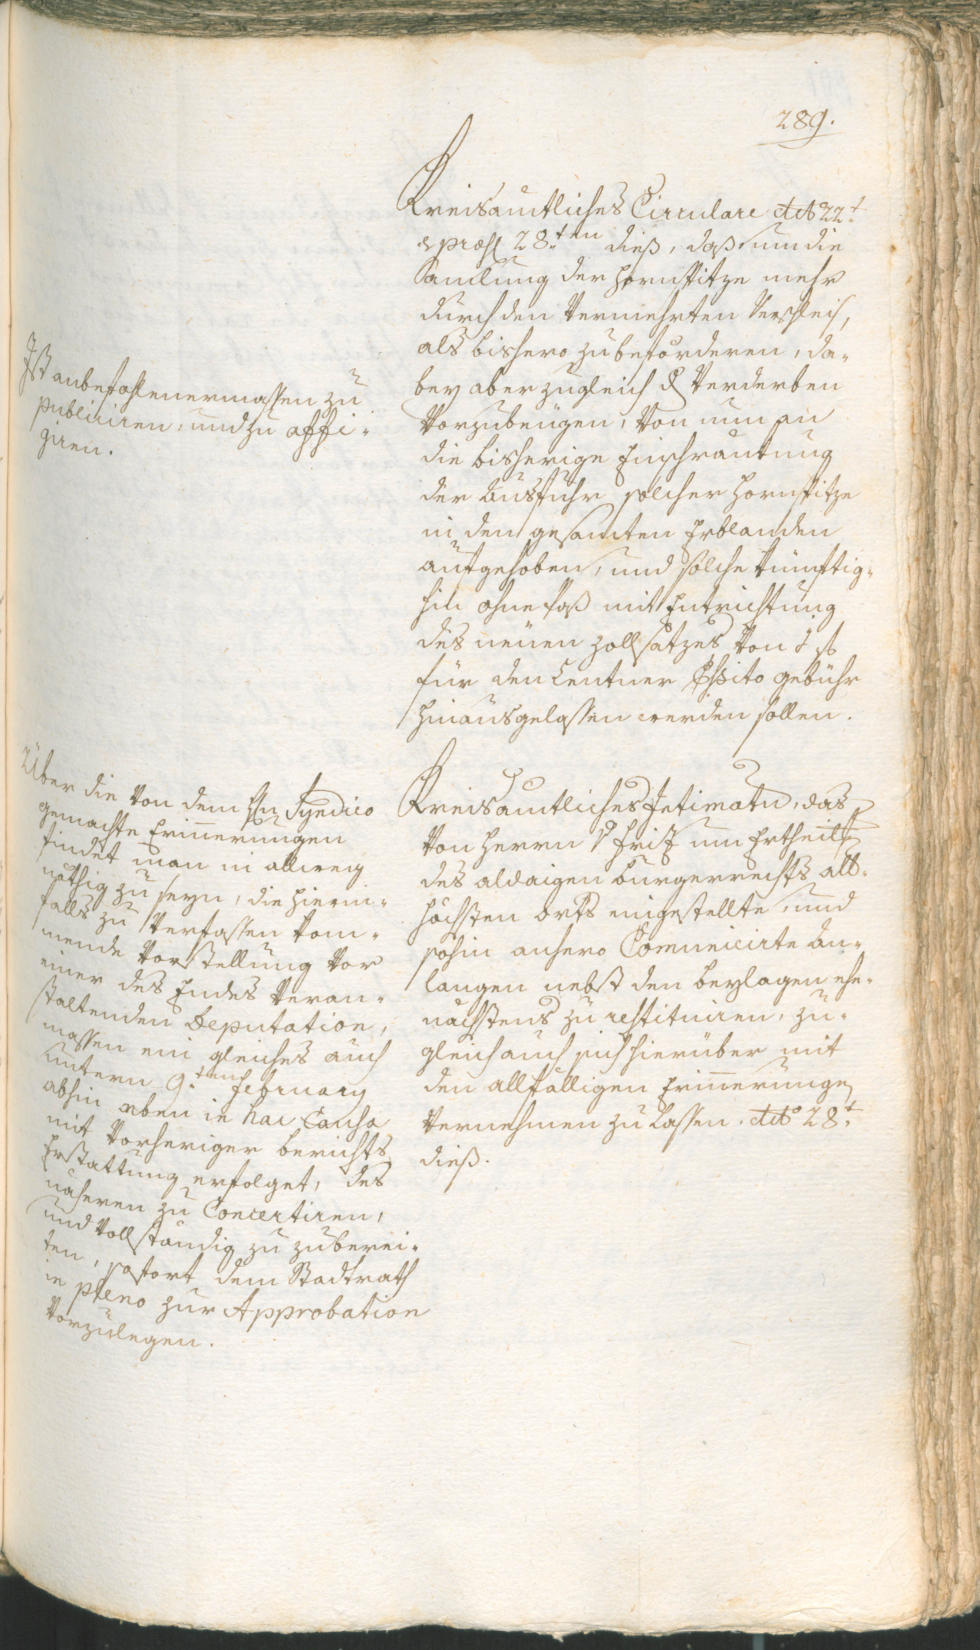 289.
Kreisamtliches Circulare ddto 22t.
& præst 28ten dieß, daß um die
Samlung der Hornspitze mehr
durch den vermehrten Verschleiß,
als bishero zubeförderen, da-
bey aber zugleich d Verderben
vorzubeugen, von nun an
die bisherige Einschrankung
der Ausfuhr solcher Hornspitze
in den gesamten Erblanden
aufgehoben, und solche künftig-
hin ohne Paß mit Entrichtung
des neuen Zollsatzes von
für den Centner Essito gebühr
hinausgelassen werden sollen.
Ist anbefohlenermassen zu
publiciren, und zu affi-
giren.
Kreisamtliches Intimatum, das
von Herrn v Friz um Ertheilg
des aldaigen Burgerrechts all-
höchsten Orts eingestellte, und
sohin anhero Comunicirte An-
langen nebst den beylagen ehe-
nächstens zu restituiren, zu-
gleich auch sich hierüber mit
den allfälligen Erinnerungen
vernehmen zu lassen. ddto 28t.
dieß.
Über die von dem Hn Syndico
gemachte Erinnerungen
findet man in allweg
nöthig zu seyn, die hierin-
falls zu verfassen kom-
mende Vorstellung vor
einer des Endes veran-
staltenden Deputation,
massen ein gleiches auch
untern 9ten February
abhin eben in hac Causa
mit vorheriger berichts
Erstattung erfolget, des
näheren zu Concertiren,
und vollständig zu zuberei-
ten, sofort dem Stadtrath
in pleno zur Approbation
vorzulegen.